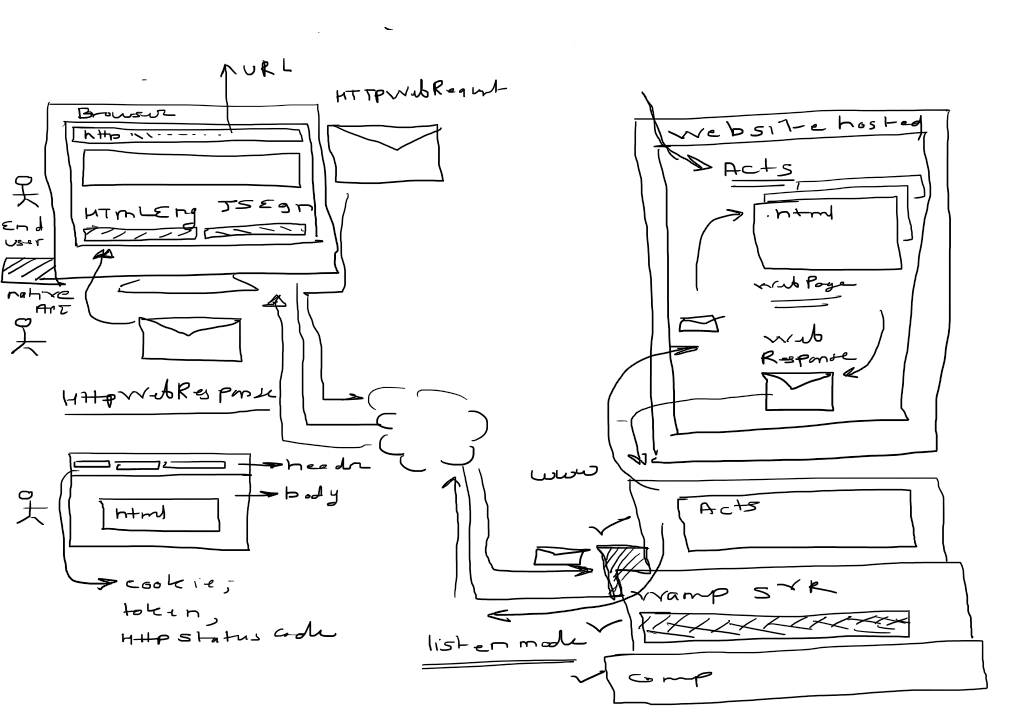 URL
HTTPWebRequest
Browser
http
HTMLEng
JSEgn
End
user
native
API
HttpWebResponse
header
body
html
cookie,
token,
Http status code
www
listen mode
Website hosted
Acts
.html
WebPage
Web
Response
Acts
wamp SVR
comp